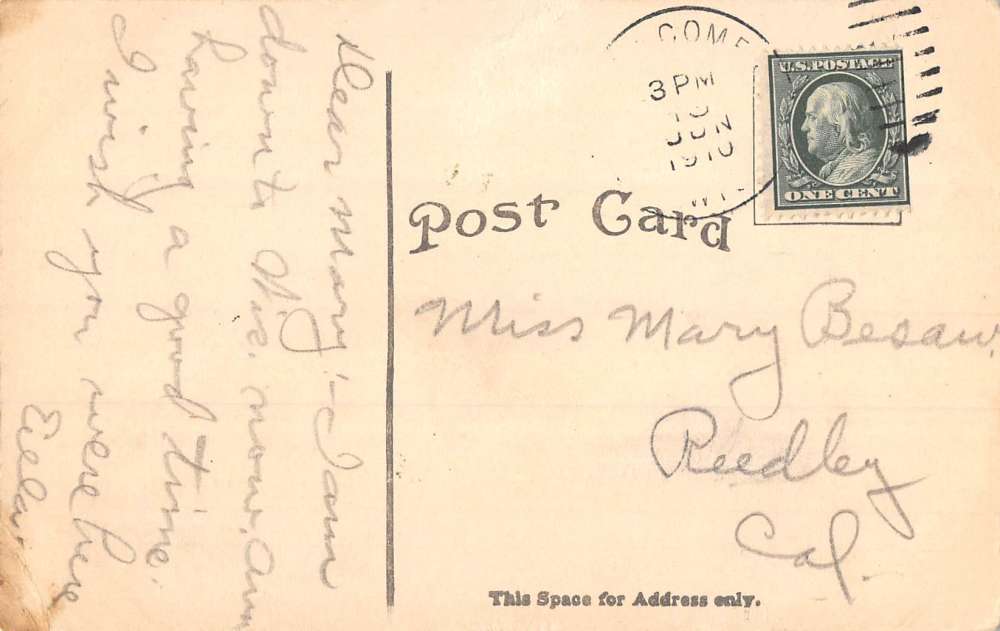 COM
3 PM
JUN
1910
U.S. POSTAGE
ONE CENT
Post Card
Dear Mary:- I am
down to now. Am
having a good time.
I wish you were here
Miss Mary Besaw.
Reedley
Cal.
This Space for Address only.